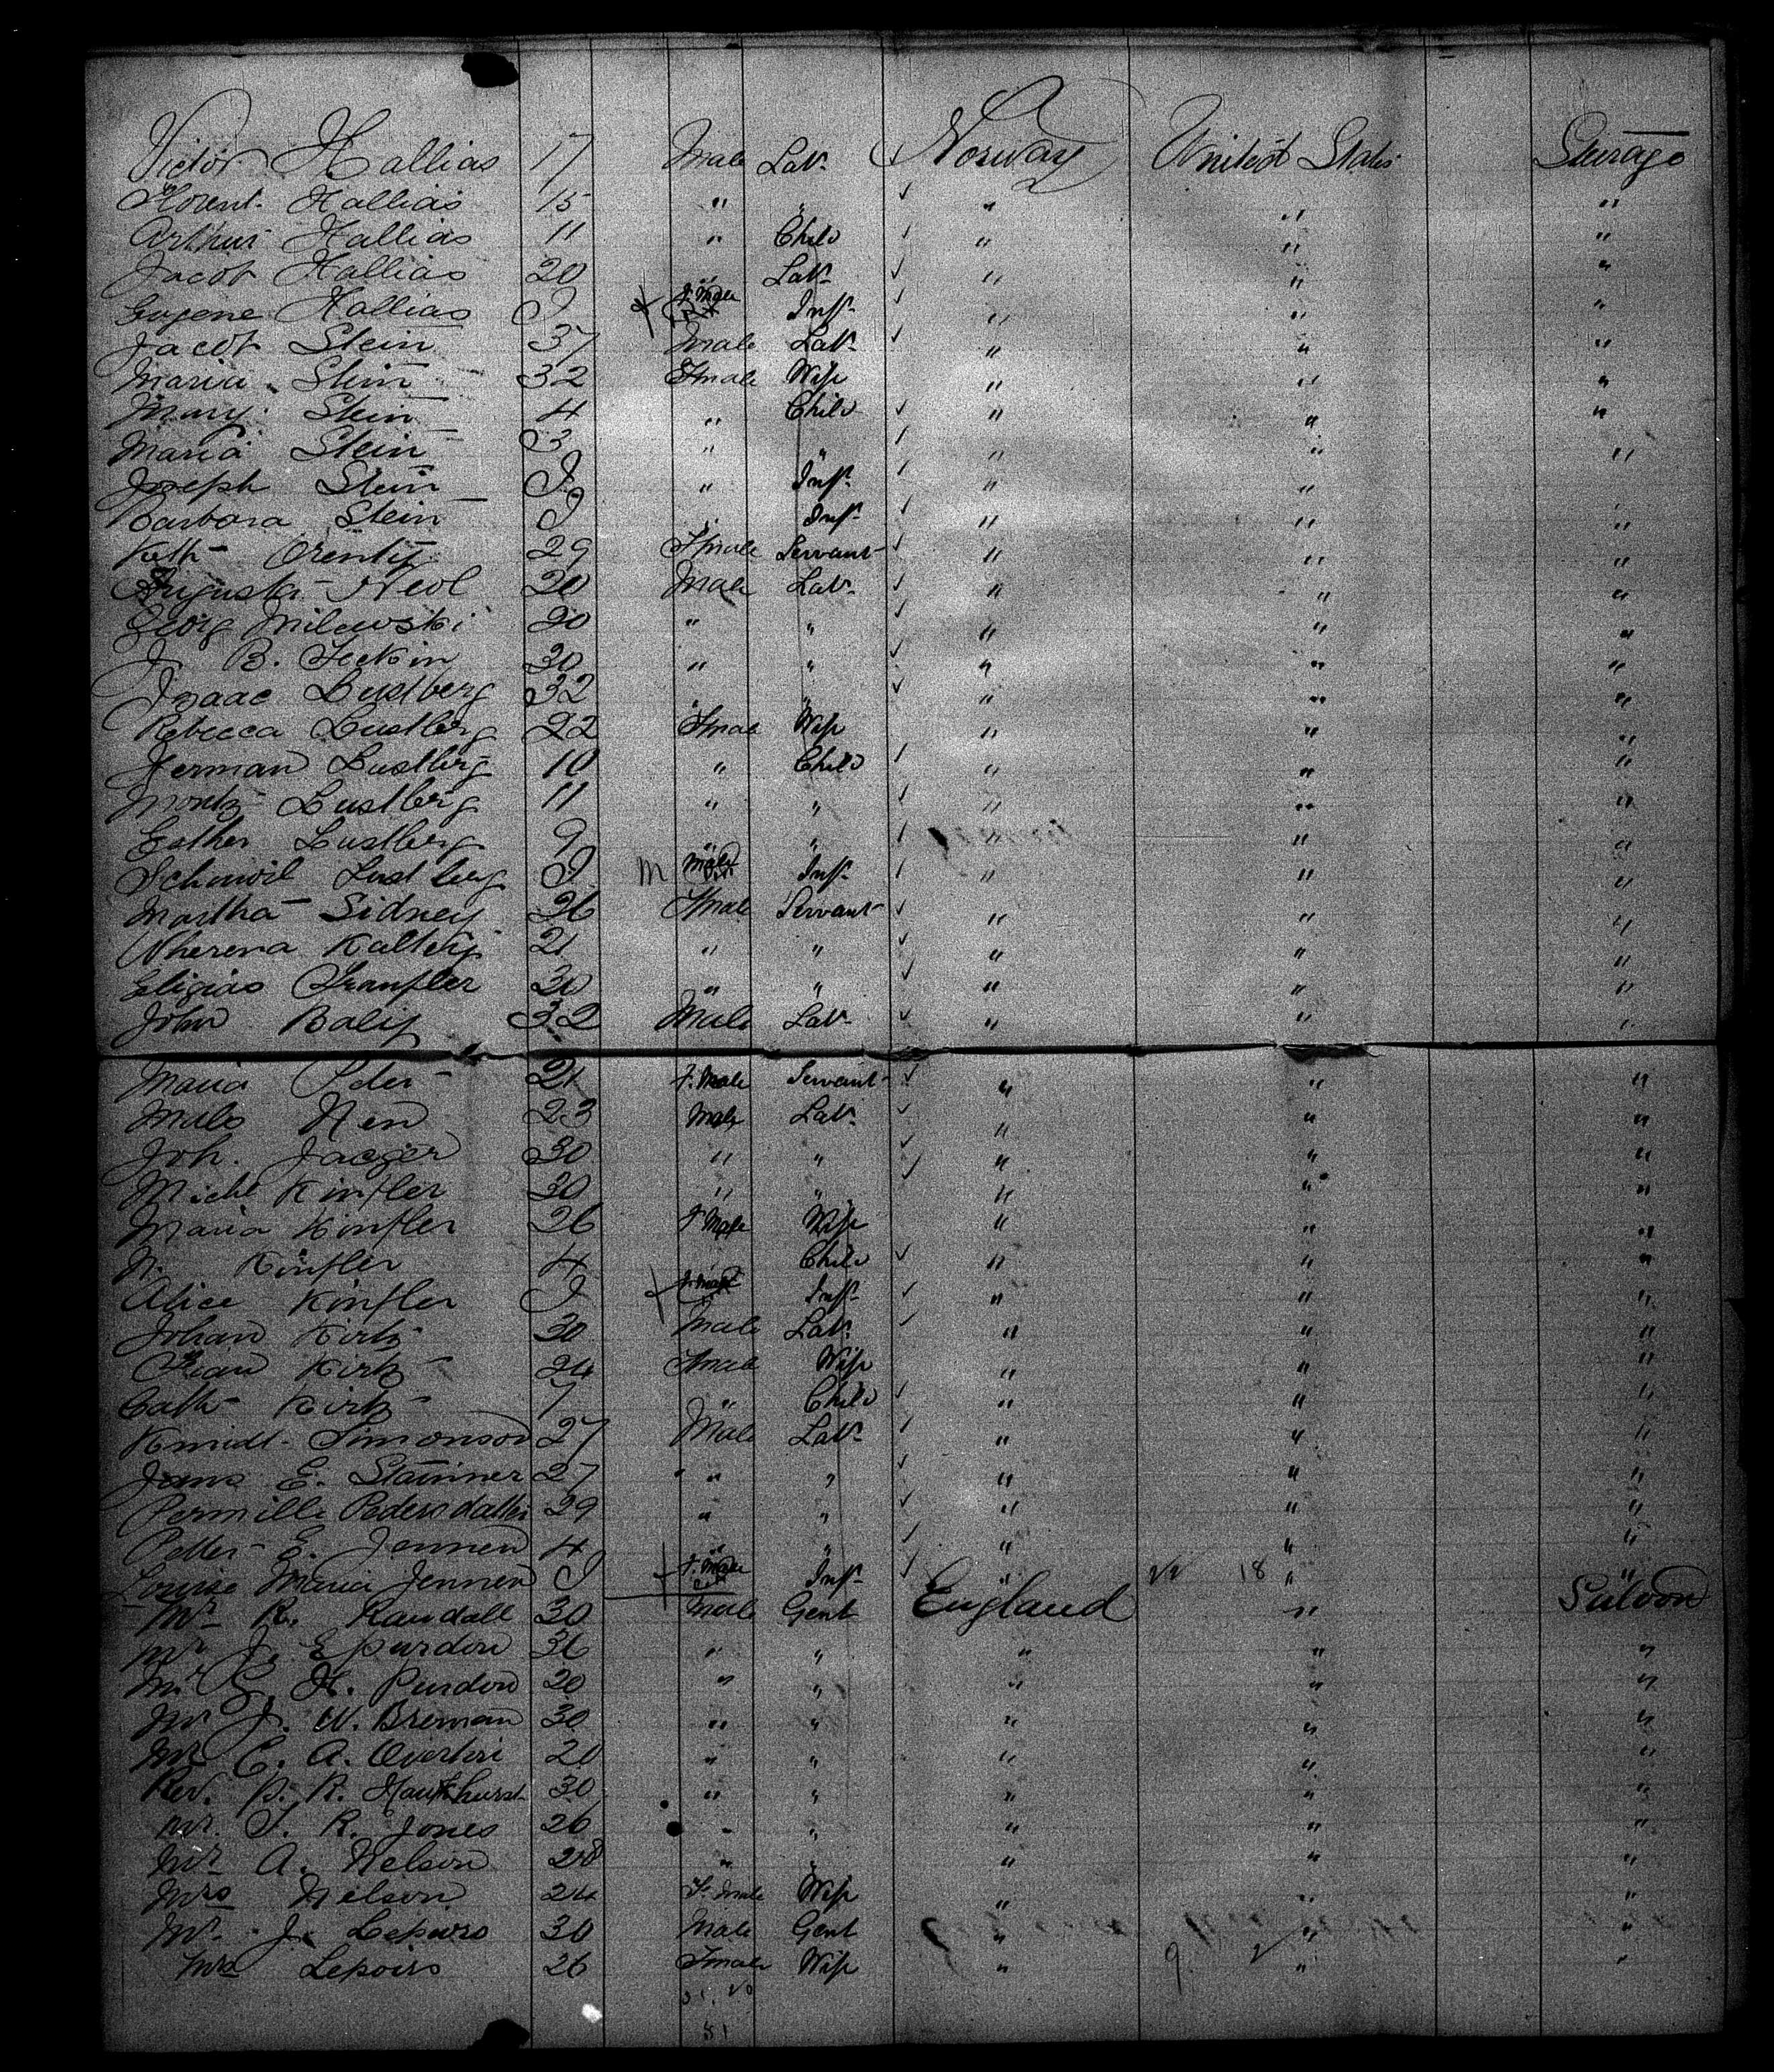 Victor Hallias 17 Male Lab. Norway United States Steerage
Florent. Hallias 15 " " " " "
Arthur Hallias 11 " Child " " "
Jacob Hallias 20 " Lab. " " "
Eugene Hallias I F. Male Inft. " " "
Jacob Stein 37 Male Lab. " " "
Maria Stein 32 Fmale Wife " " "
Mary Stein 4 " Child " " "
Maria Stein 3 " " " " "
Joseph Stein I " Inft. " " "
Barbara Stein I " Inft. " " "
Kath 29 Fmale Servant " " "
Augusta 20 Male Lab. " " "
Georg Milewski 20 " " " " "
J. B. 30 " " " " "
Isaac Lustberg 32 " " " " "
Rebecca Lustberg 22 Fmale Wife " " "
Herman Lustberg 10 " Child " " "
Moritz Lustberg 11 " " " " "
Esther Lustberg 9 " " " " "
Lustberg I M Male Inft. " " "
Martha Sidney 26 Fmale Servant " " "
21 " " " " "
30 " " " " "
John 32 Male Lab. " " "
Maria Peter 21 F. Male Servant " " "
23 Male Lab. " " "
Joh. Jaeger 30 " " " " "
Michl Kinfler 30 " " " " "
Maria Kinfler 26 F Male Wife " " "
N. Kinfler 4 Child " " "
Alice Kinfler I F. Male Inft. " " "
Johan Kirtz 30 Male Lab. " " "
Kirtz 24 Fmale Wife " " "
Cath Kirtz 7 " Child " " "
Simonson 27 Male Lab. " " "
Jans E. 27 " " " " "
Pernille Pedersdatter 29 " " " " "
Petter E. Jennen 4 " " " " "
Louise Maria Jennen I F. Male Inft. " 18 " "
Mr R. Randall 30 Male Gent England " Saloon
Mr J. E Purdon 36 " " " " "
Mr H. Purdon 20 " " " " "
Mr J. W. Breman 30 " " " " "
Mr E. A. 20 " " " " "
Rev. P. R. Hawkhurst 30 " " " " "
Mr. T. R. Jones 26 " " " " "
Mr A. Nelson 28 " " " " "
Mrs Nelson 24 F. male Wife " " "
Mr J. 30 Male Gent " " "
Mrs 26 Fmale Wife " " "